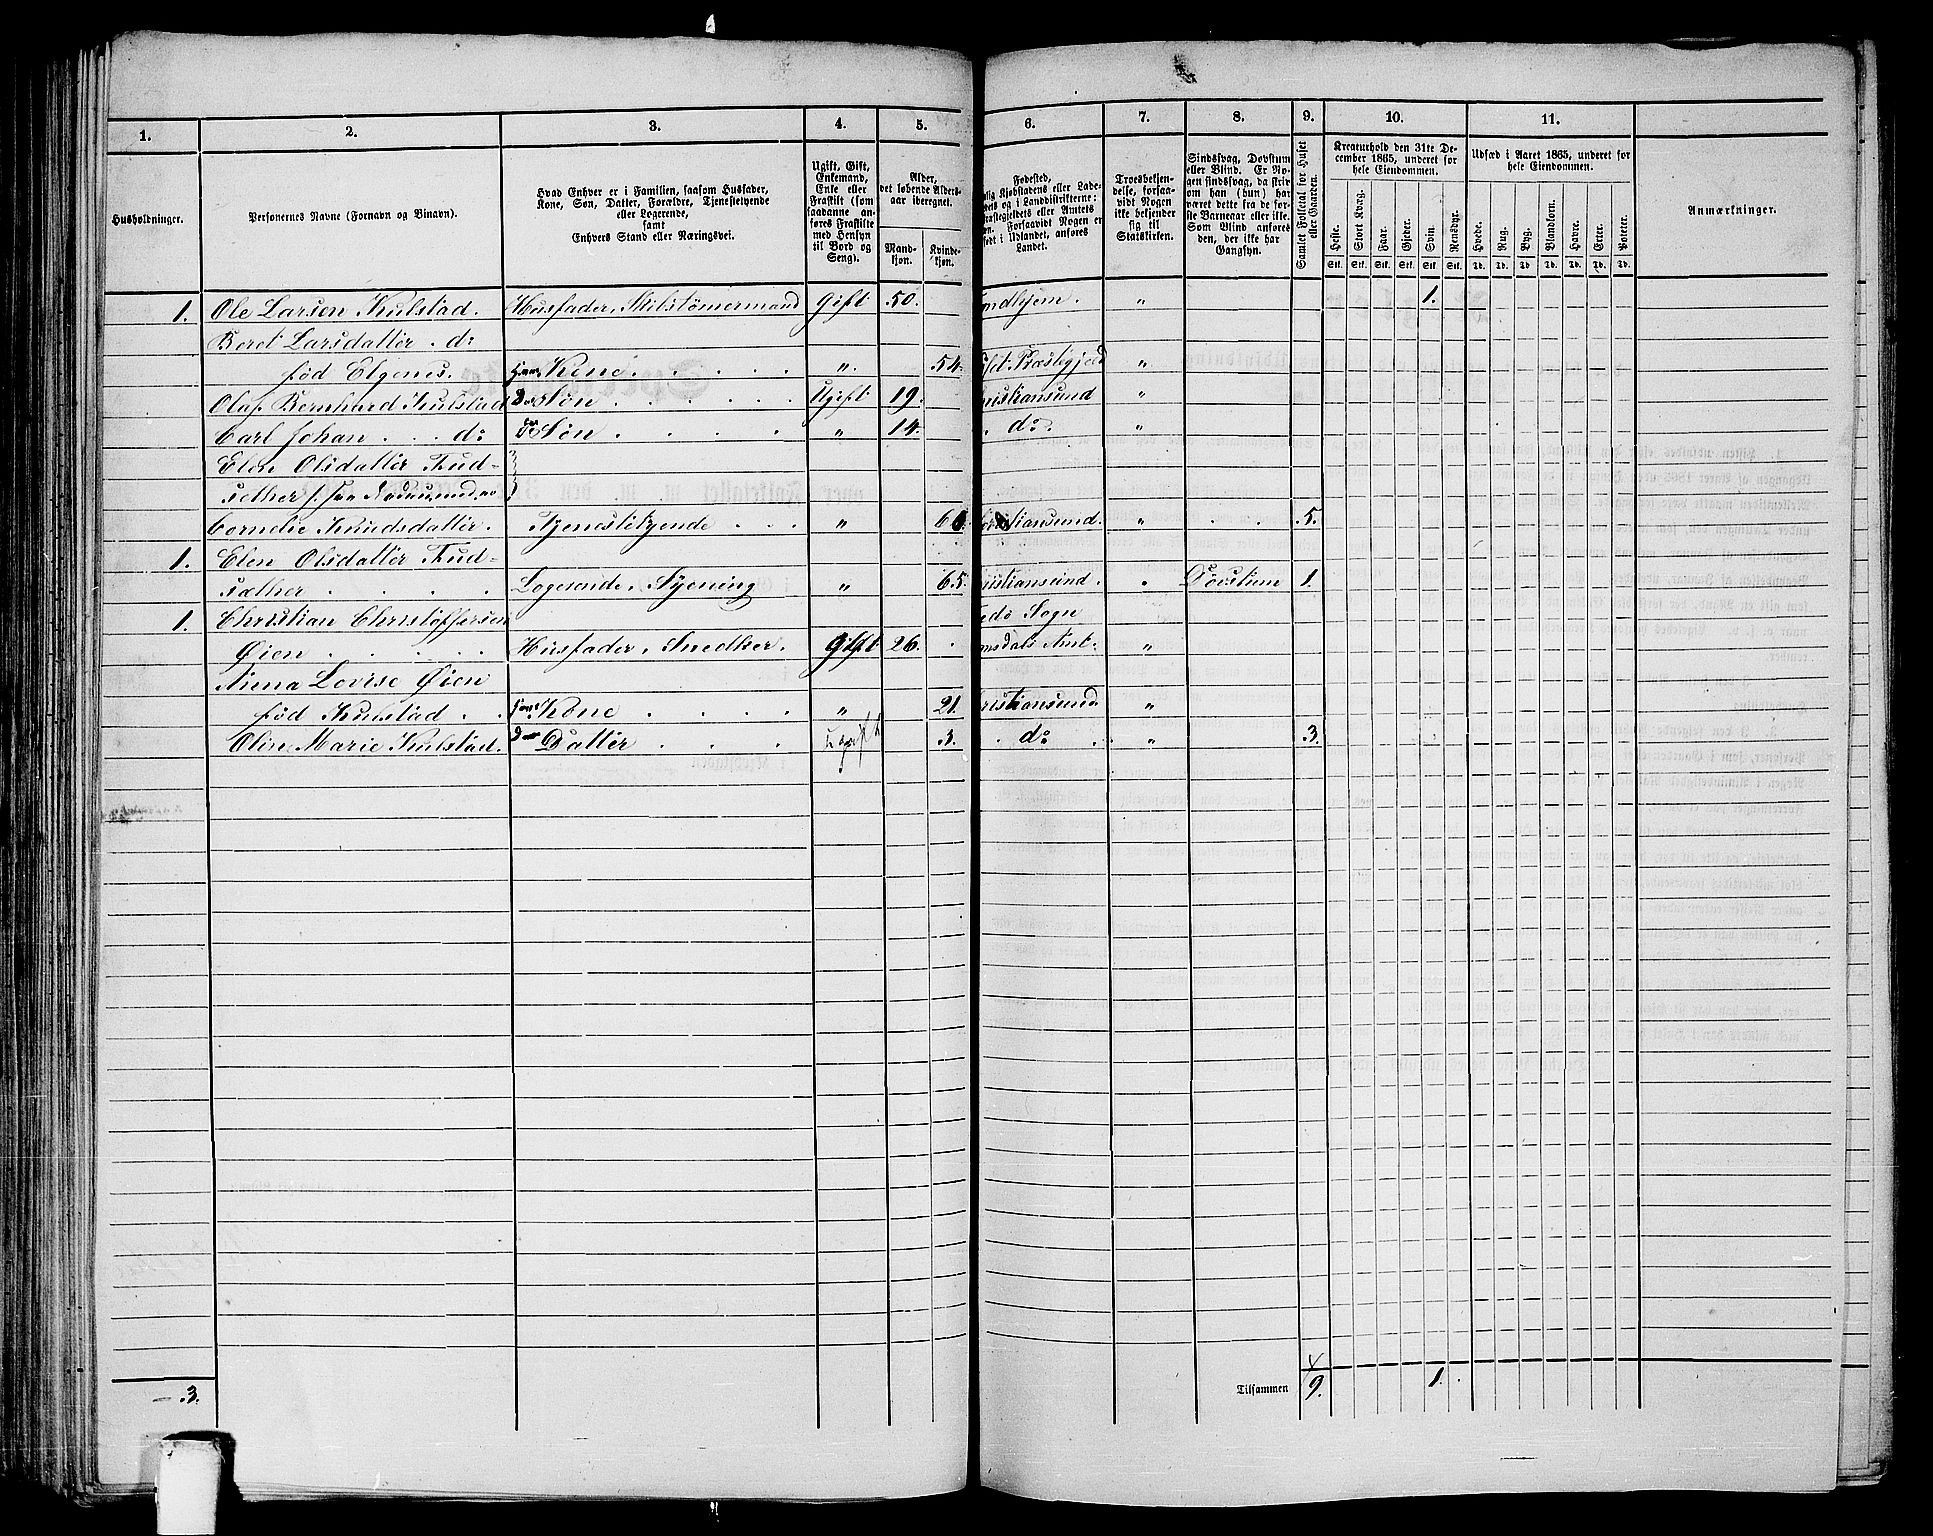 1. 2. 3. 4. 5. 6. 7. 8. 9. 10. 11.
Husholdninger.
Personernes Navne (Fornavn og Binavn).
Hvad Enhver er i Familien, saasom Husfader,
Kone, Søn, Datter, Forældre, Tjenestetyende
eller Logerende,
samt
Enhvers Stand eller Næringsvei.
Ugift, Gift,
Enkemand,
Enke eller
Fraskilt (som
saadanne an-
føres Fraskilte
med Hensyn
til Bord og
Seng).
Alder,
det løbende Alders-
aar iberegnet.
Mand-
kjøn.
Kvinde-
kjøn.
Fødested,
lig Kjøbstadens eller Lade-
ets og i Landdistrikterne:
æstegjeldets eller Amtets
n. Forsaavidt Nogen er
født i Udlandet, anføres
Landet.
Troesbekjen-
delse, forsaa-
vidt Nogen
ikke bekjender
sig til
Statskirken.
Sindssvag, Døvstum
eller Blind. Er No-
gen sindssvag, da skriv
om han (hun) har
været dette fra de før-
ste Barneaar eller ikke.
Som Blind anføres
den, der ikke har
Gangsyn.
Samlet Folketal for Huset
eller Gaarden.
Kreaturhold den 31te De-
cember 1865, underet for
hele Eiendommen.
Heste. Stort Kvæg. Faar. Gjeder. Svin. Rensdyr.
Stk. Stk. Stk. Stk. Stk. Stk.
Udsæd i Aaret 1865, underet for
hele Eiendommen.
Hvede. Rug. Byg. Blandkorn. Havre. Erter. Poteter.
Td. Td. Td. Td. Td. Td. Td.
Anmærkninger.
1. Ole Larsen Kulstad. Husfader, Skibstömermand gift 50. ondhjem. " 1.
Beret Larsdatter. do
född Elgenes. hans Kone. " 54. Præstegjeld "
Olaf Bernhard Kulstad Ds Søn Ugift 19. ristiansund "
Carl Johan do Søn " 14. do. "
Elen Olsdatter Tud-
sether
Cornelie Knudsdatter. Tjenestetyende " istiansund. " 5.
1. Elen Olsdatter Tud-
sæther Logerende, Syening " 65. ristiansund. " Døvstum 1.
1. Christian Christoffersen edø Sogn
Øien Husfader, Snedker. gift 26. msdals Amt. "
Anna Lovise Øien
född Kulstad hans Kone " 21. ristiansund "
Olin Marie Kulstad. Datter Ugift 3. do "  3.
3. Tilsammen 9. 1.